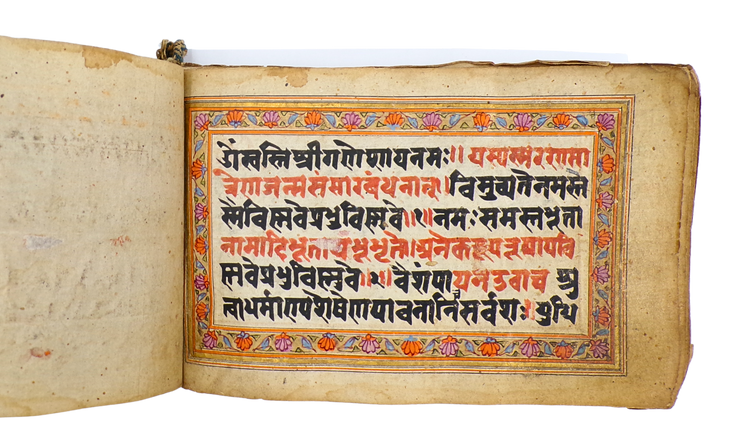 ॐस्वस्तिश्रीगणेशायनमः॥ यस्यस्मरणमा
त्रेणजन्मसंसारबंधनात्॥विमुच्यतेनमस्त
स्मैविस्नवेप्रभुविस्नवे॥१॥नमःसमस्तभूता
नामादिभूतायभूभृते॥अनेकरूपरूपायवि
स्नवेप्रभुविस्नवे॥२॥वैशंपायनउवाच श्रु
त्वाधर्माण्यशेषेणपावनानिसर्वशः॥युधि